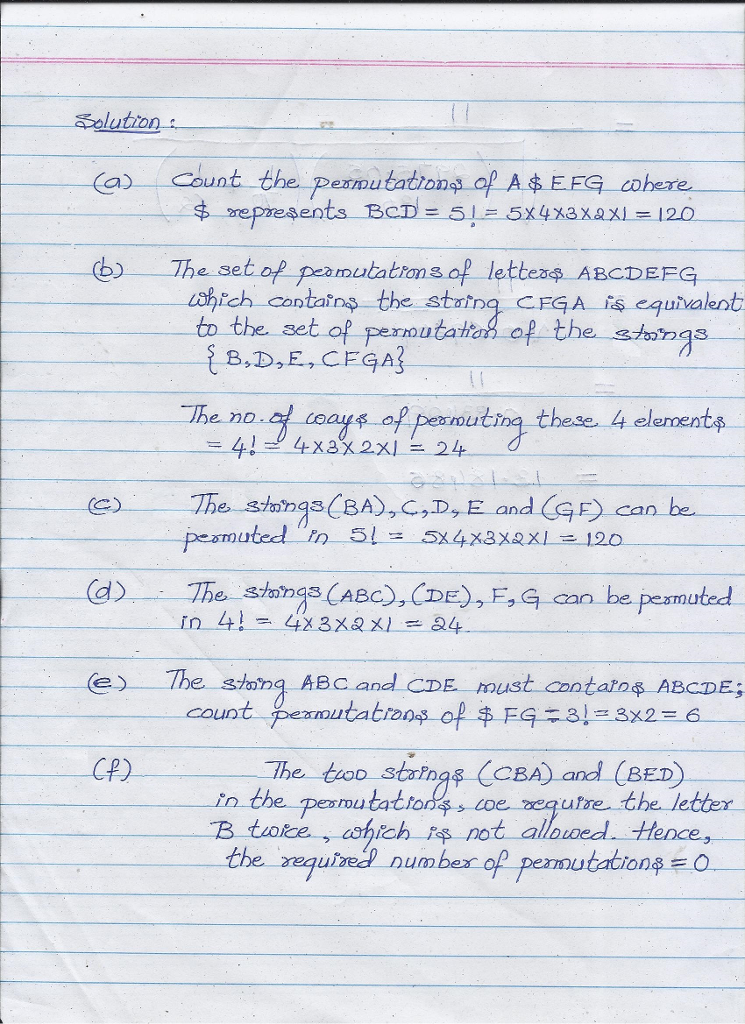 Solution :
(a) Count the permutations of A $ EFG where
$ represents BCD = 5! = 5X4X3X2X1 = 120
(b) The set of permutations of letters ABCDEFG
which contains the string CFGA is equivalent
to the set of permutation of the strings
{ B, D, E, CFGA}
The no. of ways of permuting these 4 elements
= 4! = 4X3X2X1 = 24
(c) The strings (BA), C, D, E and (GF) can be
permuted in 5! = 5X4X3X2X1 = 120
(d) The strings (ABC), (DE), F, G can be permuted
in 4! = 4X3X2X1 = 24.
(e) The string ABC and CDE must contains ABCDE;
count permutations of $ FG = 3! = 3X2 = 6
(f) The two strings (CBA) and (BED)
in the permutations, we require the letter
B twice, which is not allowed. Hence,
the required number of permutations = 0.